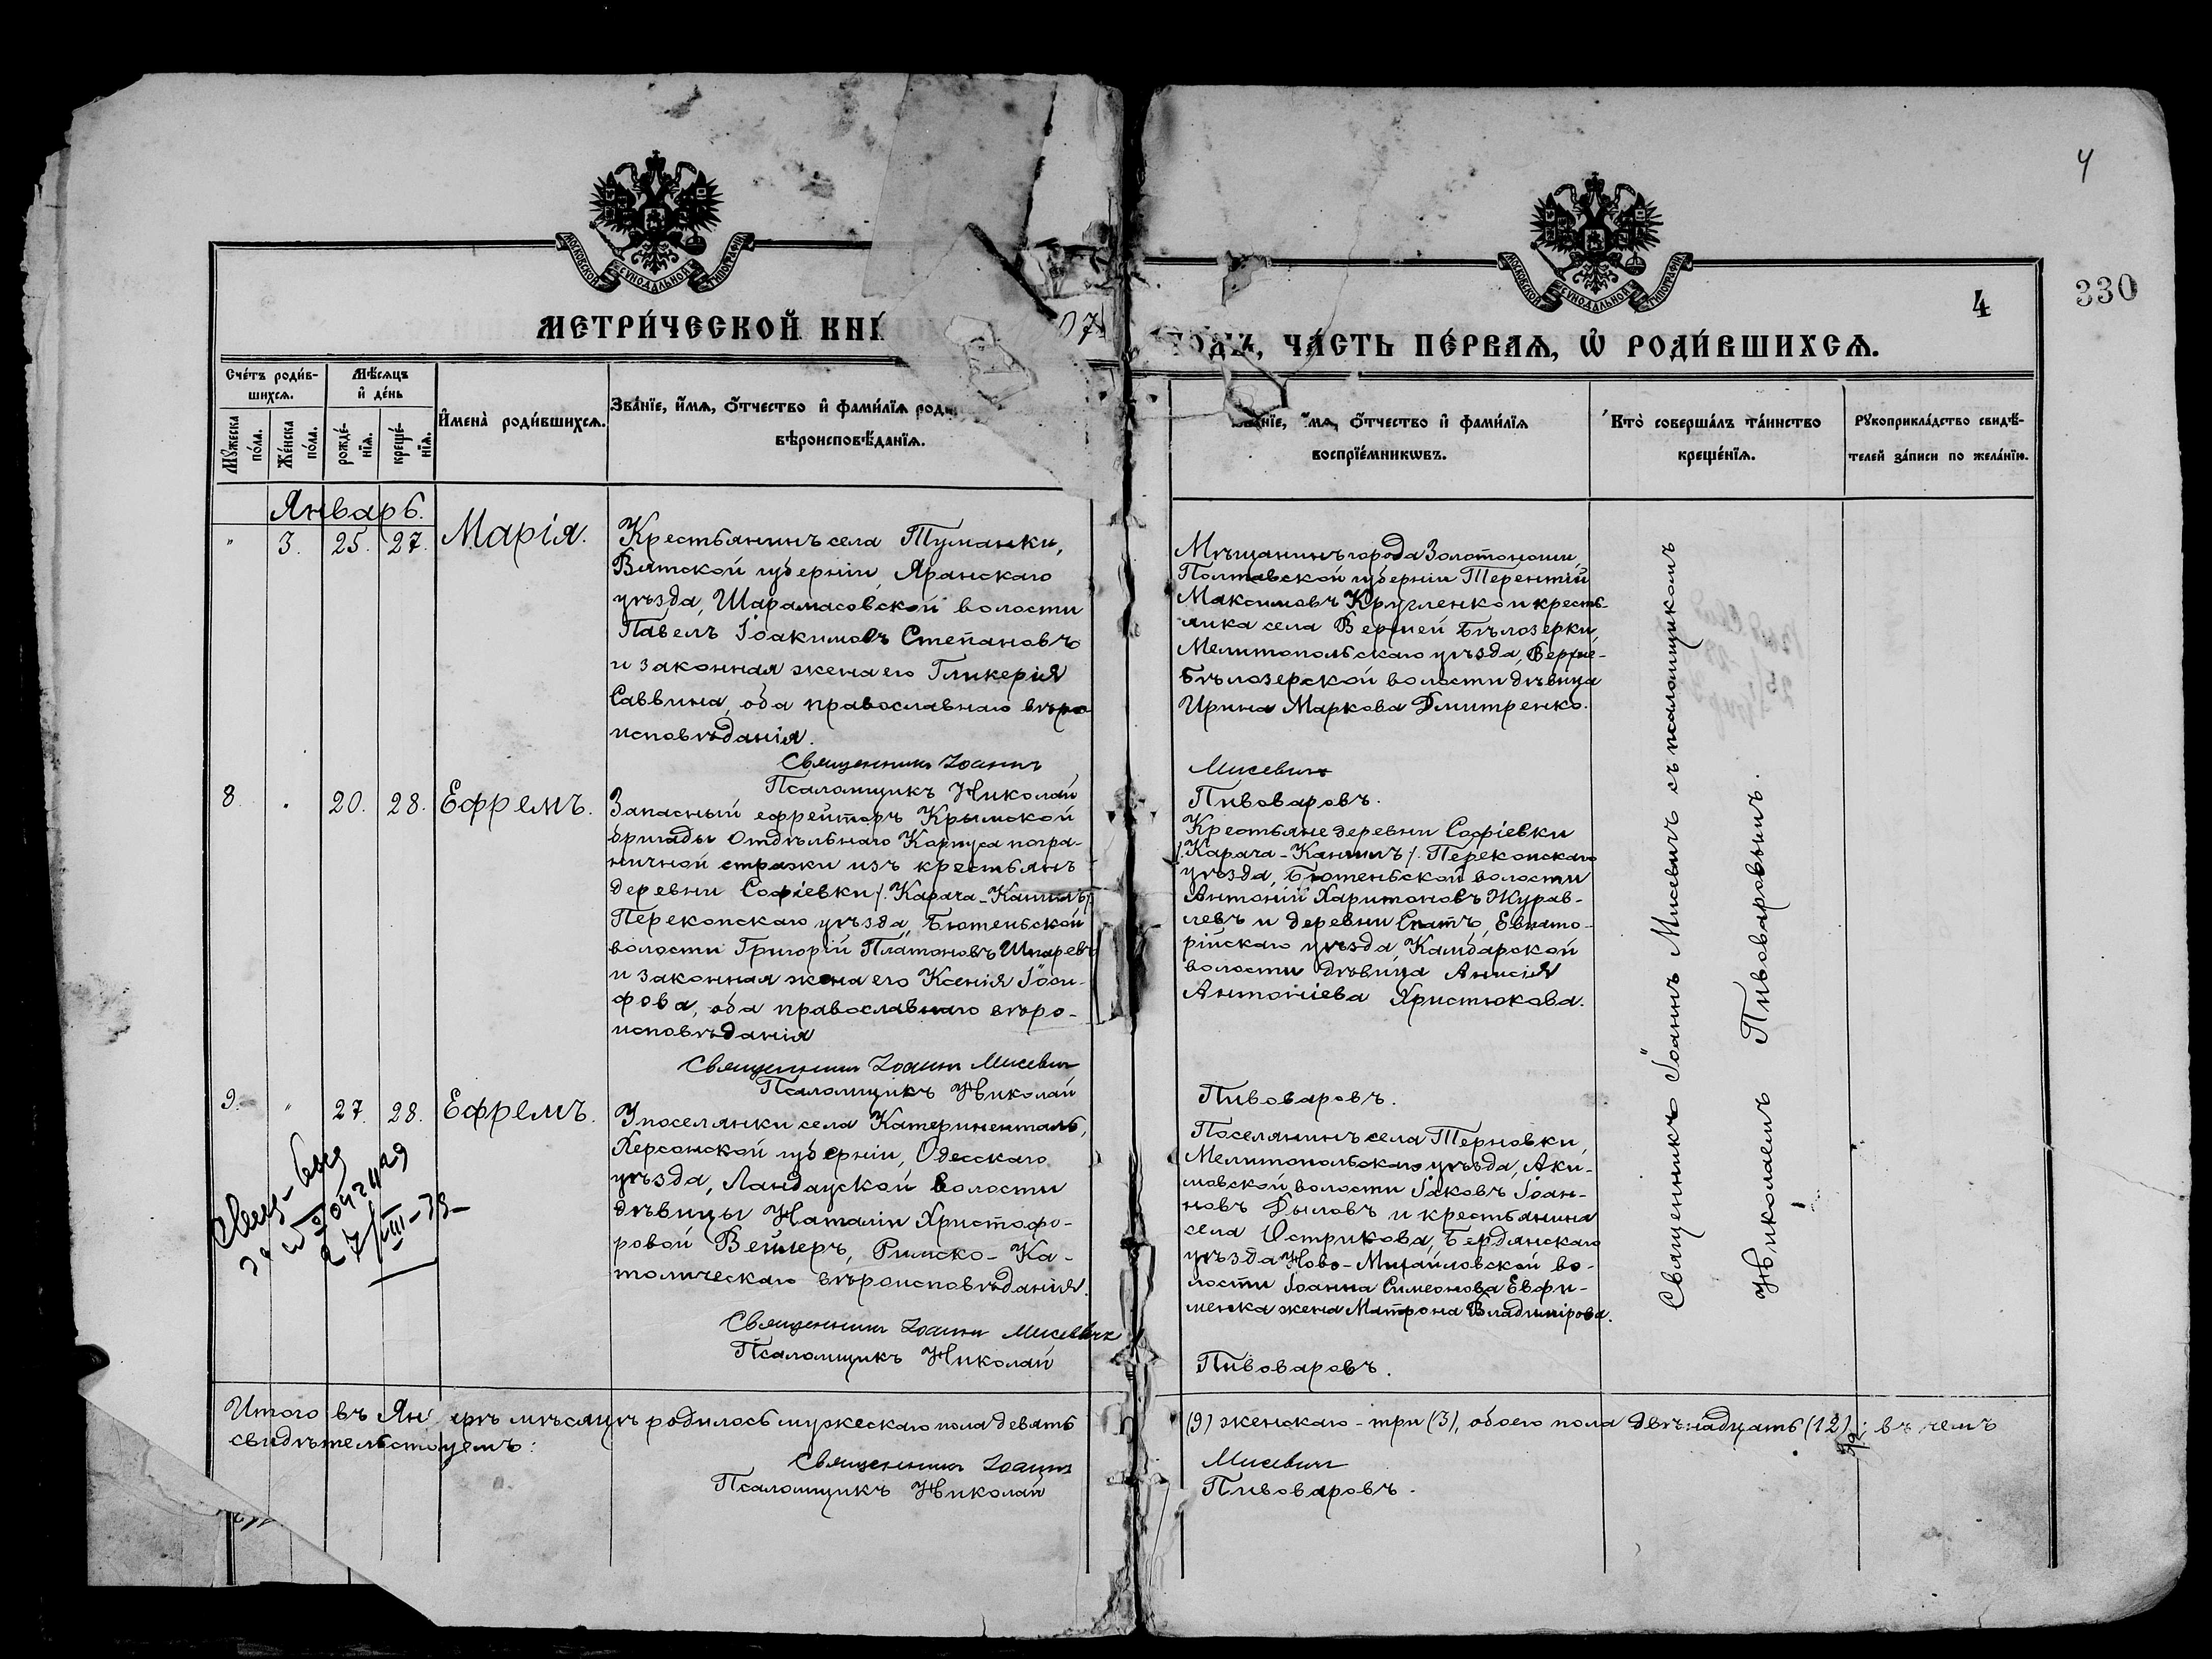 4
МОСКОВСКОЙ СѴНОДАЛЬНОЙ ТИПОГРАФІИ
МОСКОВСКОЙ СѴНОДАЛЬНОЙ ТИПОГРАФІИ
330
4
МЕТРИ́ЧЕСКОЙ КНИ
07
ГОДЪ, ЧА́СТЬ ПЕ́РВАѦ, Ѡ РОДИ́ВШИХСѦ.
Сче́тъ роди́в-
шихсѧ.
Мѣ́сяцъ
и҆ де́нь
Мꙋжеска
по́ла.
Же́нска
по́ла.
рожде́-
нїѧ.
креще́-
нїѧ.
И҆мена̀ роди́вшихсѧ.
Зва́нїе, и҆́мѧ, ѻ҆́тчество и҆ фами́лїѧ роди
вѣроисповѣ́данїѧ.
нїе, мѧ, ѻ҆́тчество и҆ фами́лїѧ
воспрїе́мникѡвъ.
Кто̀ соверша́лъ та́инство
креще́нїѧ.
Рꙋкоприкла́дство свидѣ́-
телей за́писи по жела́нїю.
Январь.
" 3. 25. 27. Марія.
Крестьянинъ села Туманки,
Вятской губерніи, Яранскаго
уѣзда, Шарамасовской волости
Павелъ Іоакимовъ Степановъ
и законная жена его Гликерія
Саввина, оба православнаго вѣро
исповѣданія.
Священникъ Іоаннъ
Псаломщикъ Николай
Мѣщанинъ города Золотоноши,
Полтавской губерніи Терентій
Максимовъ Кругленко и кресть-
янка села Верхней Бѣлозерки,
Мелитопольскаго уѣзда, Верхне-
Бѣлозерской волости дѣвица
Ирина Маркова Дмитренко.
Мисевичъ
Пивоваровъ.
8. . 20. 28. Ефремъ.
Запасный ефрейторъ Крымской
бригады Отдѣльнаго Корпуса погра-
ничной стражи изъ крестьянъ
деревни Софіевки /. Карача-Кангилъ/.
Перекопскаго уѣзда, Бютеньской
волости Григорій Платоновъ Шпаревъ
и законная жена его Ксенія Іоси-
фова, оба православнаго вѣро-
исповѣданія
Священникъ Іоаннъ Мисевичъ
Псаломщикъ Николай
Крестьяне деревни Софіевки
/.Карача-Кангилъ/. Перекопскаго
уѣзда, Бютеньской волости
Антоній Харитоновъ Журав-
левъ и деревни Спатъ, Евпато-
рійскаго уѣзда, Камбарской
волости дѣвица Анисія
Антоніева Христюкова.
Пивоваровъ.
9. " 27. 28. Ефремъ.
У поселянки села Катериненталь,
Херсонской губерніи, Одесскаго
уѣзда, Ландауской волости
дѣвицы Наталіи Христофо-
ровой Вейлеръ, Римско-Ка-
толическаго вѣроисповѣданія.
Священникъ Іоаннъ Мисевичъ
Псаломщикъ Николай
Поселянинъ села Терновки,
Мелитопольскаго уѣзда, Аки-
мовской волости Іаковъ Іоан-
новъ Дыловъ и крестьянина
села Острикова, Бердянскаго
уѣзда Ново-Михайловской во-
лости Іоанна Симеонова Евфи-
менка жена Матрона Владимірова.
Пивоваровъ.
27/VIII-
Священникъ Іоаннъ Мисевичъ съ псаломщикомъ
Николаемъ Пивоваровымъ.
Итого въ Ян арѣ мѣсяцѣ родилось мужескаго пола девять (9) женскаго - три (3), обоего пола двѣнадцать (12); въ чемъ
свидѣтельствуемъ:
Священникъ Іоаннъ Мисевичъ
Псаломщикъ Николай Пивоваровъ.